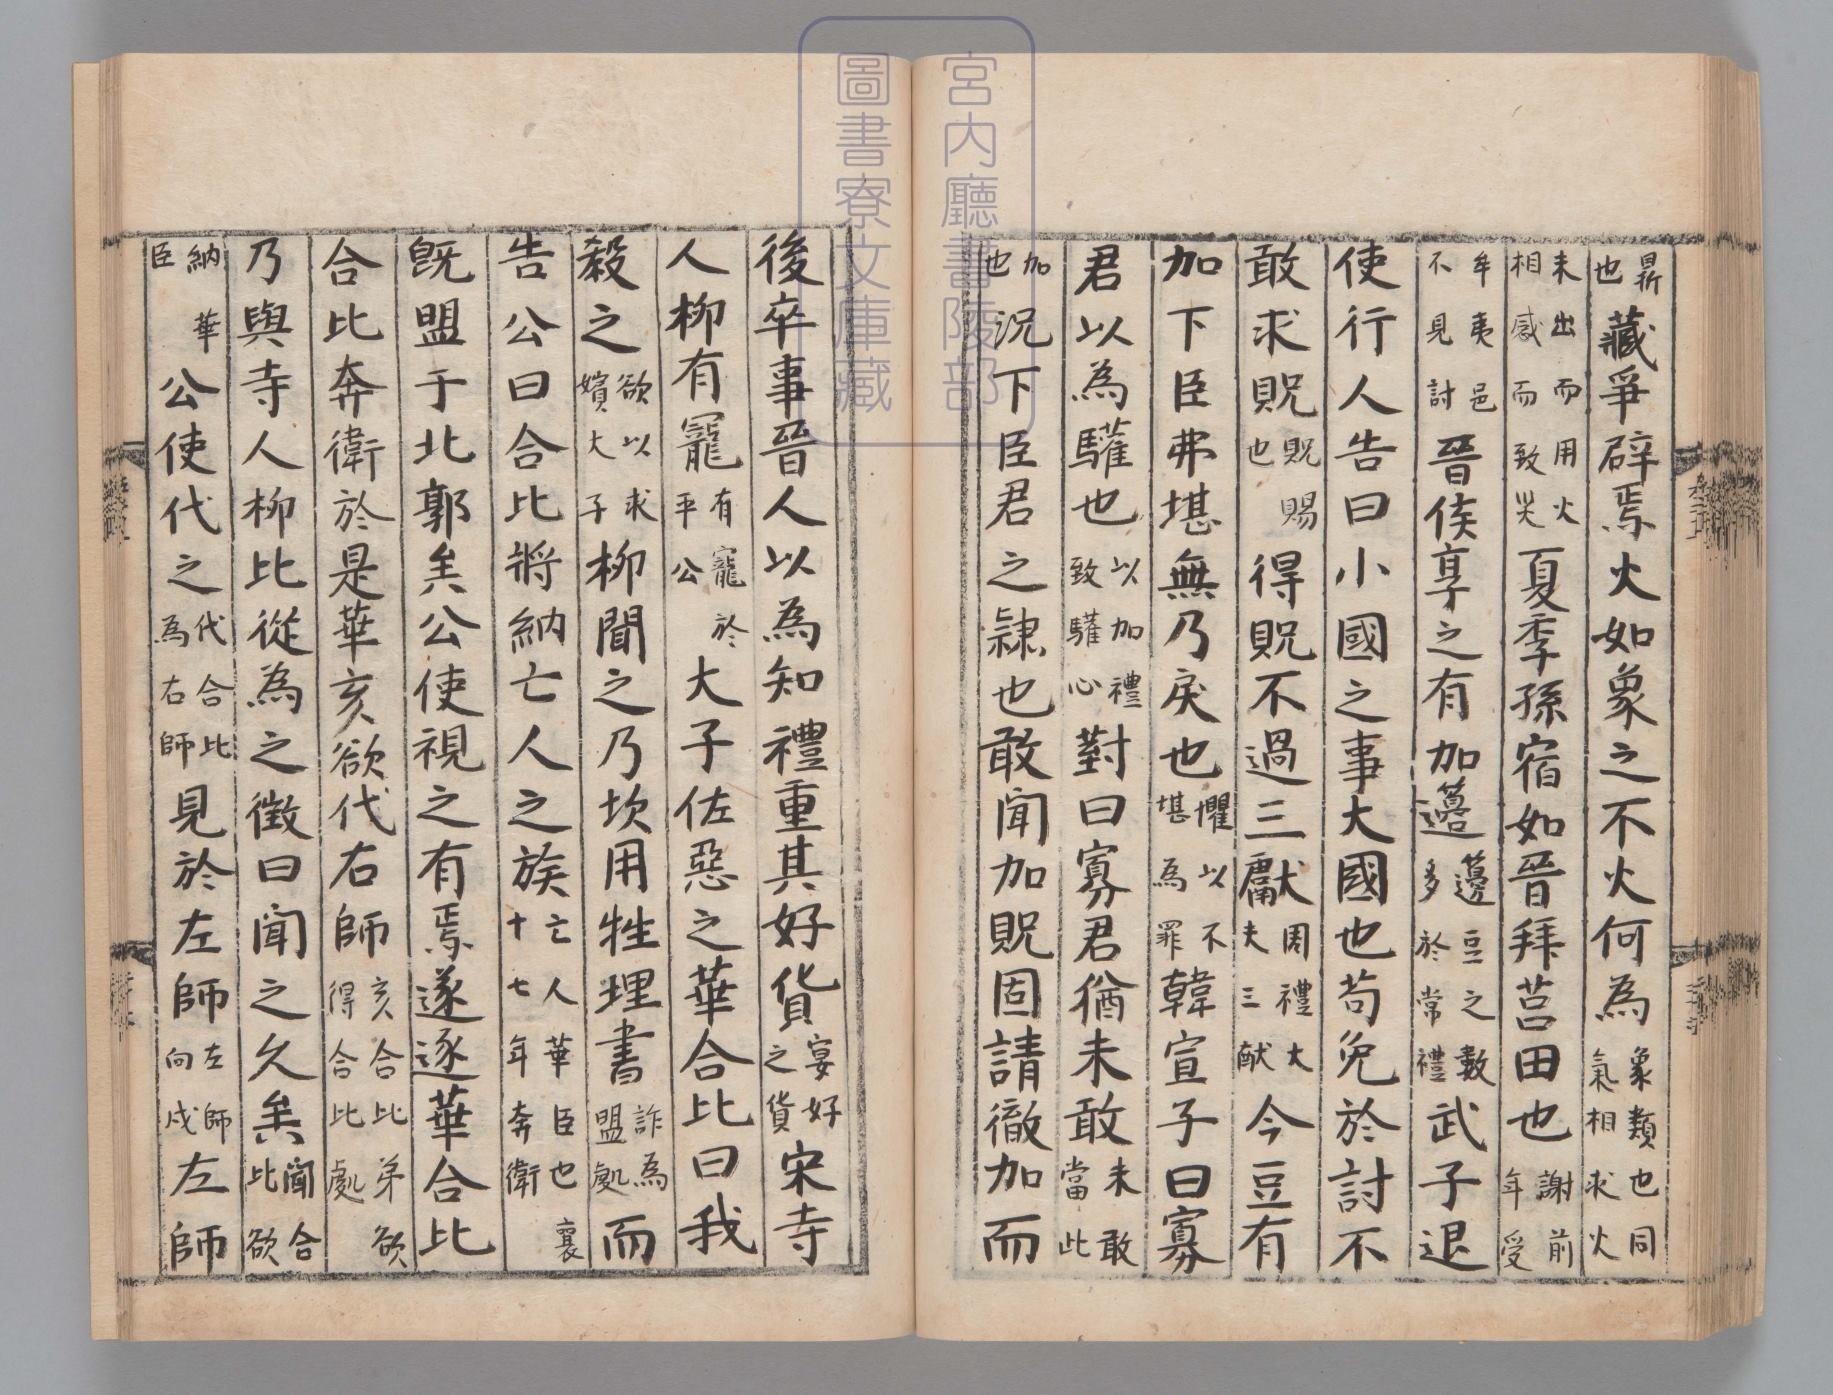 鼎也藏爭辟焉火如象之不火何為象類也同氣相求火
未出而用火相感而致災夏季孫宿如晉拜莒田也謝前年受
牟夷邑不見討晉侯享之有加籩籩豆之數多於常禮武子退
使行人告曰小國之事大國也苟免於討不
敢求貺貺賜也得貺不過三獻周禮大夫三献今豆有
加下臣弗堪無乃戾也懼以不堪為罪韓宣子曰寡
君以為驩也以加禮致驩心對曰寡君猶未敢未敢當此
加也況下臣君之隷也敢聞加貺固請徹加而
後卒事晉人以為知禮重其好貨宴好之貨宋寺
人柳有寵有寵於平公大子佐惡之華合比曰我
殺之欲以求媚大子柳聞之乃坎用牲埋書詐為盟処而
告公曰合比將納亡人之族亡人華臣也襄十七年奔衛
既盟于北郭矣公使視之有焉遂逐華合比
合比奔衛於是華亥欲代右師亥合比弟欲得合比處
乃與寺人柳比從為之徵曰聞之久矣聞合比欲
納華臣公使代之代合比為右師見於左師左師向戌左師
宮内廳書陵部
圖書寮文庫藏